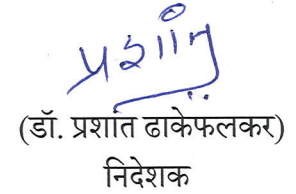 प्रशांत
(डॉ. प्रशांत ढाकेफलकर)
निदेशक